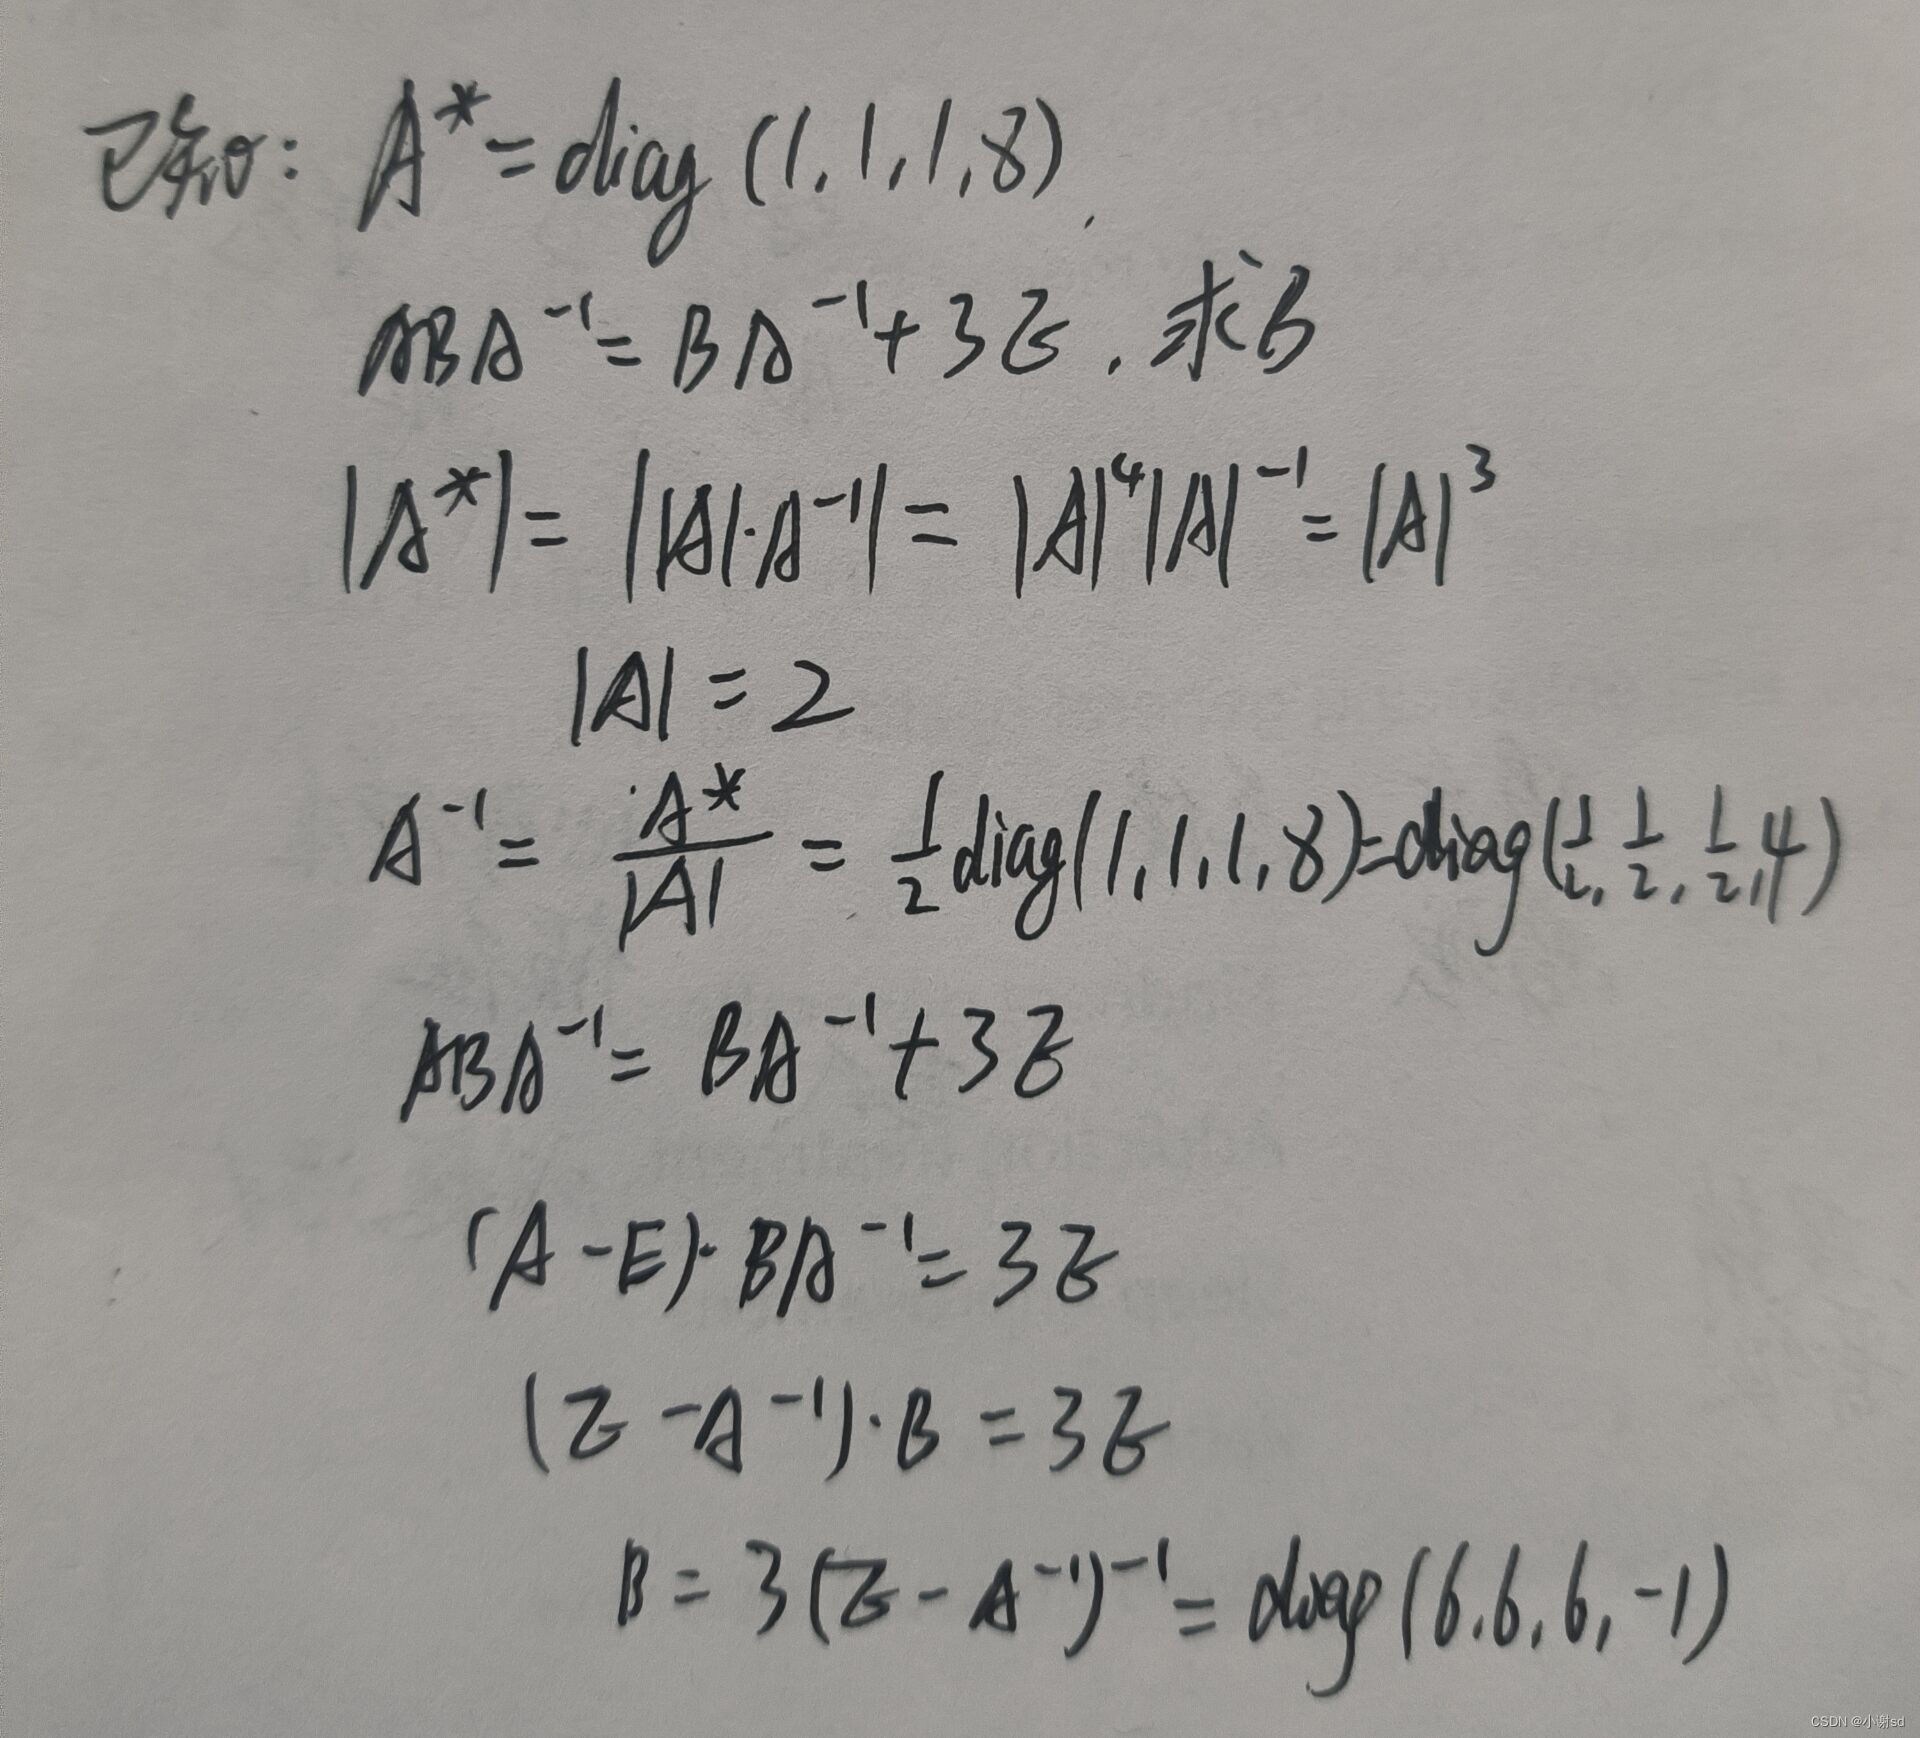 已知: A* = diag (1, 1, 1, 8),
ABA⁻¹ = BA⁻¹ + 3E, 求B
|A*| = ||A|·A⁻¹| = |A|⁴|A|⁻¹ = |A|³
|A| = 2
A⁻¹ = A*/|A| = 1/2 diag(1, 1, 1, 8) = diag(1/2, 1/2, 1/2, 4)
ABA⁻¹ = BA⁻¹ + 3E
(A - E)·BA⁻¹ = 3E
(E - A⁻¹)·B = 3E
B = 3(E - A⁻¹)⁻¹ = diag(6, 6, 6, -1)
CSDN @小谢sd